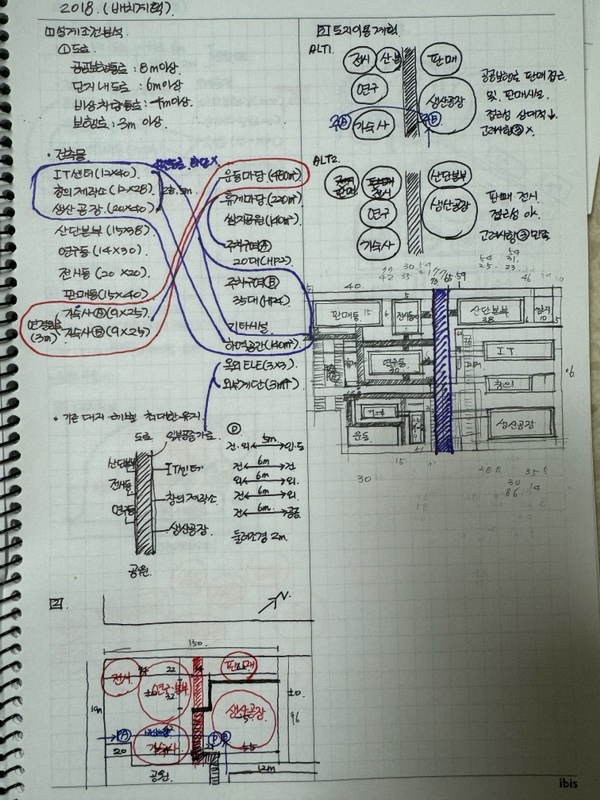 2018. (배치계획)
① 설계조건분석
① 도로
공공보행통로 : 8m이상
단지 내 도로 : 6m이상
비상차량동로 : 4m이상
보행로 : 3m 이상
• 건축물
IT센터 (12×40)
창의 제작소 (12×28)
생산 공장 (20×40)
산단본부 (15×38)
연구동 (14×30)
전시동 (20×20)
판매동 (15×40)
기숙사Ⓐ (9×25)
기숙사Ⓑ (9×25)
(3m)
운동마당 (480㎡)
휴게마당 (220㎡)
쌈지공원 (140㎡)
주차구역Ⓐ
20대 (HP2)
주차구역Ⓑ
35대 (HP4)
기타시설
하역공간 (140㎡)
옥외 ELE (3×3)
외부계단 (3m)
• 기존 대지 레벨 최대한 유지
도로
산단본부
전시동
연구동
IT센터
창의 제작소
생산공장
공원
Ⓟ
건·외 5m 인·도
건 6m 건
외 6m 외
건 6m 외
건 6m 공공
둘레조경 2m
② 토지이용계획
ALT1
전시
산본
연구
기숙사
판매
생산공장
공공보행로 판매 접근
및 판매시설
접근성 상대적↓
고려사항③ X
ALT2
판매
전시
연구
기숙사
산단본부
생산공장
판매 전시
접근성 ok
고려사항③ 만족
40
46
판매동 15
전시동
연구동
30
운동
산단본부
38
IT
창의
생산공장
96
15
30
②
N
130
전시
연구·본부
32
기숙사
판매
생산공장
±0
96
20
12m
공원
ibis